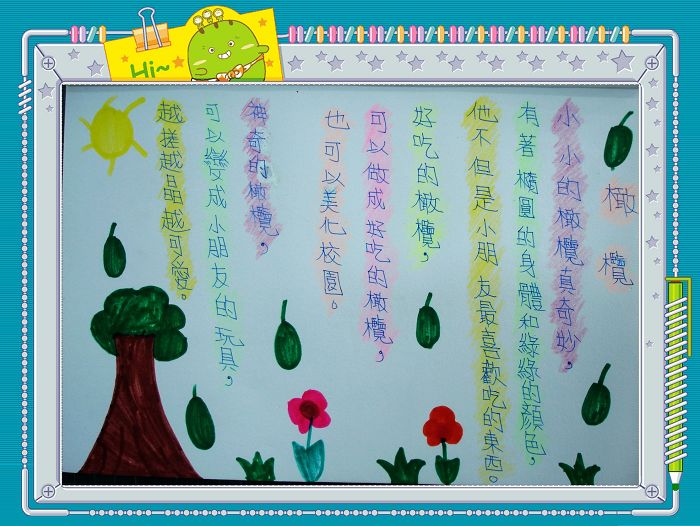 Hi~
橄欖
小小的橄欖真奇妙，
有著橢圓的身體和綠綠的顏色，
他不但是小朋友最喜歡吃的東西。
好吃的橄欖，
可以做成好吃的橄欖，
也可以美化校園。
神奇的橄欖，
可以變成小朋友的玩具，
越搓越晶越可愛。